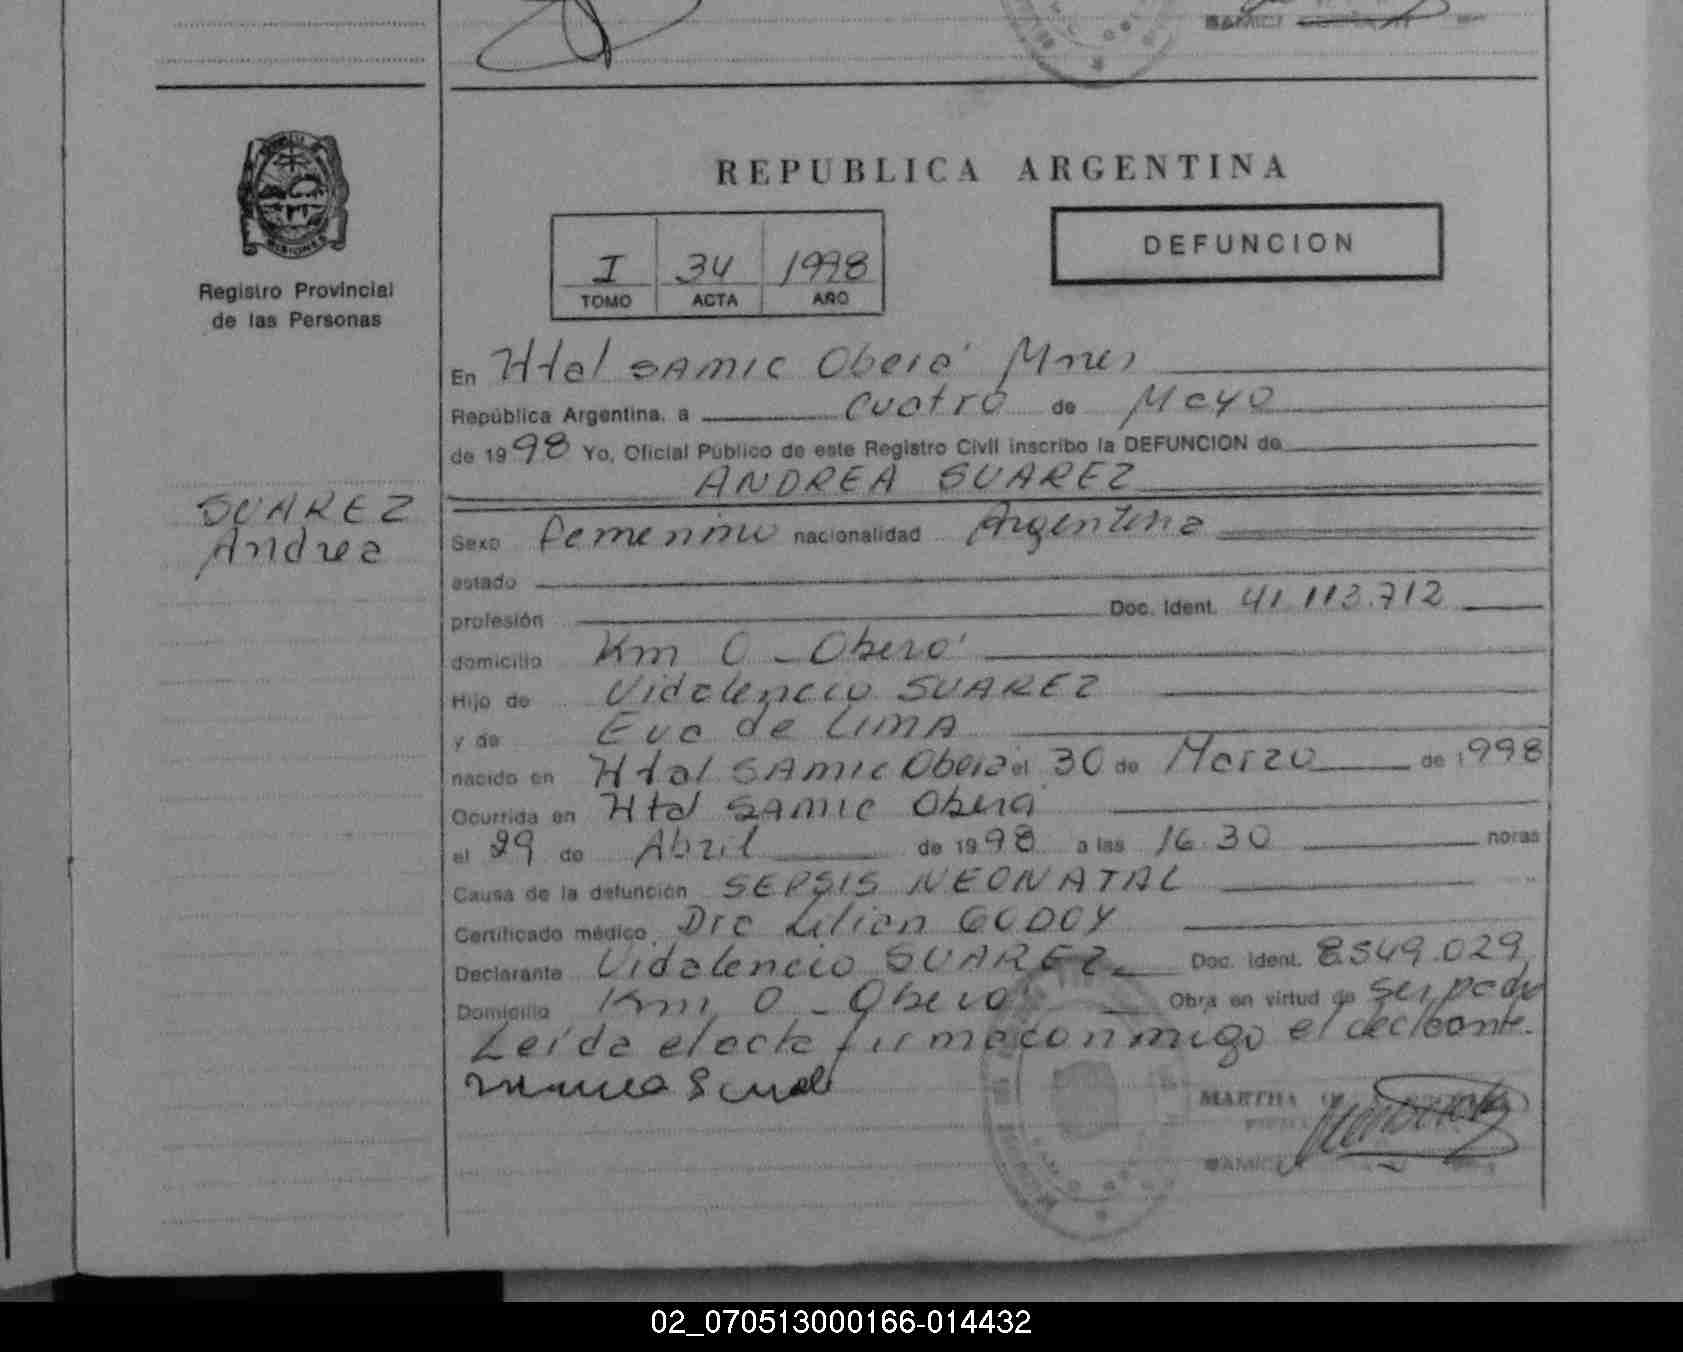 REPUBLICA ARGENTINA
DEFUNCION
I 34 1998
TOMO ACTA AÑO
MISIONES
Registro Provincial
de las Personas
En Htal SAMIC Oberá Mnes
República Argentina, a cuatro de Mayo
de 1998 Yo, Oficial Público de este Registro Civil inscribo la DEFUNCION de
ANDREA SUAREZ
SUAREZ
Andrea
Sexo Femenino nacionalidad Argentina
estado
profesión Doc. Ident. 41.113.712
domicilio Km 0 - Oberá
Hijo de Vidalencio SUAREZ
y de Eva de LIMA
nacido en Htal SAMIC Oberá el 30 de Marzo de 1998
Ocurrida en Htal SAMIC Oberá
el 29 de Abril de 1998 a las 16.30 horas
Causa de la defunción SEPSIS NEONATAL
Certificado médico Dra Lilian GODOY
Declarante Vidalencio SUAREZ Doc. Ident. 8.549.029
Domicilio Km 0 - Oberá Obra en virtud de ser padre
Leída el acta firma conmigo el declarante.
MARTHA
SAMIC
02_070513000166-014432